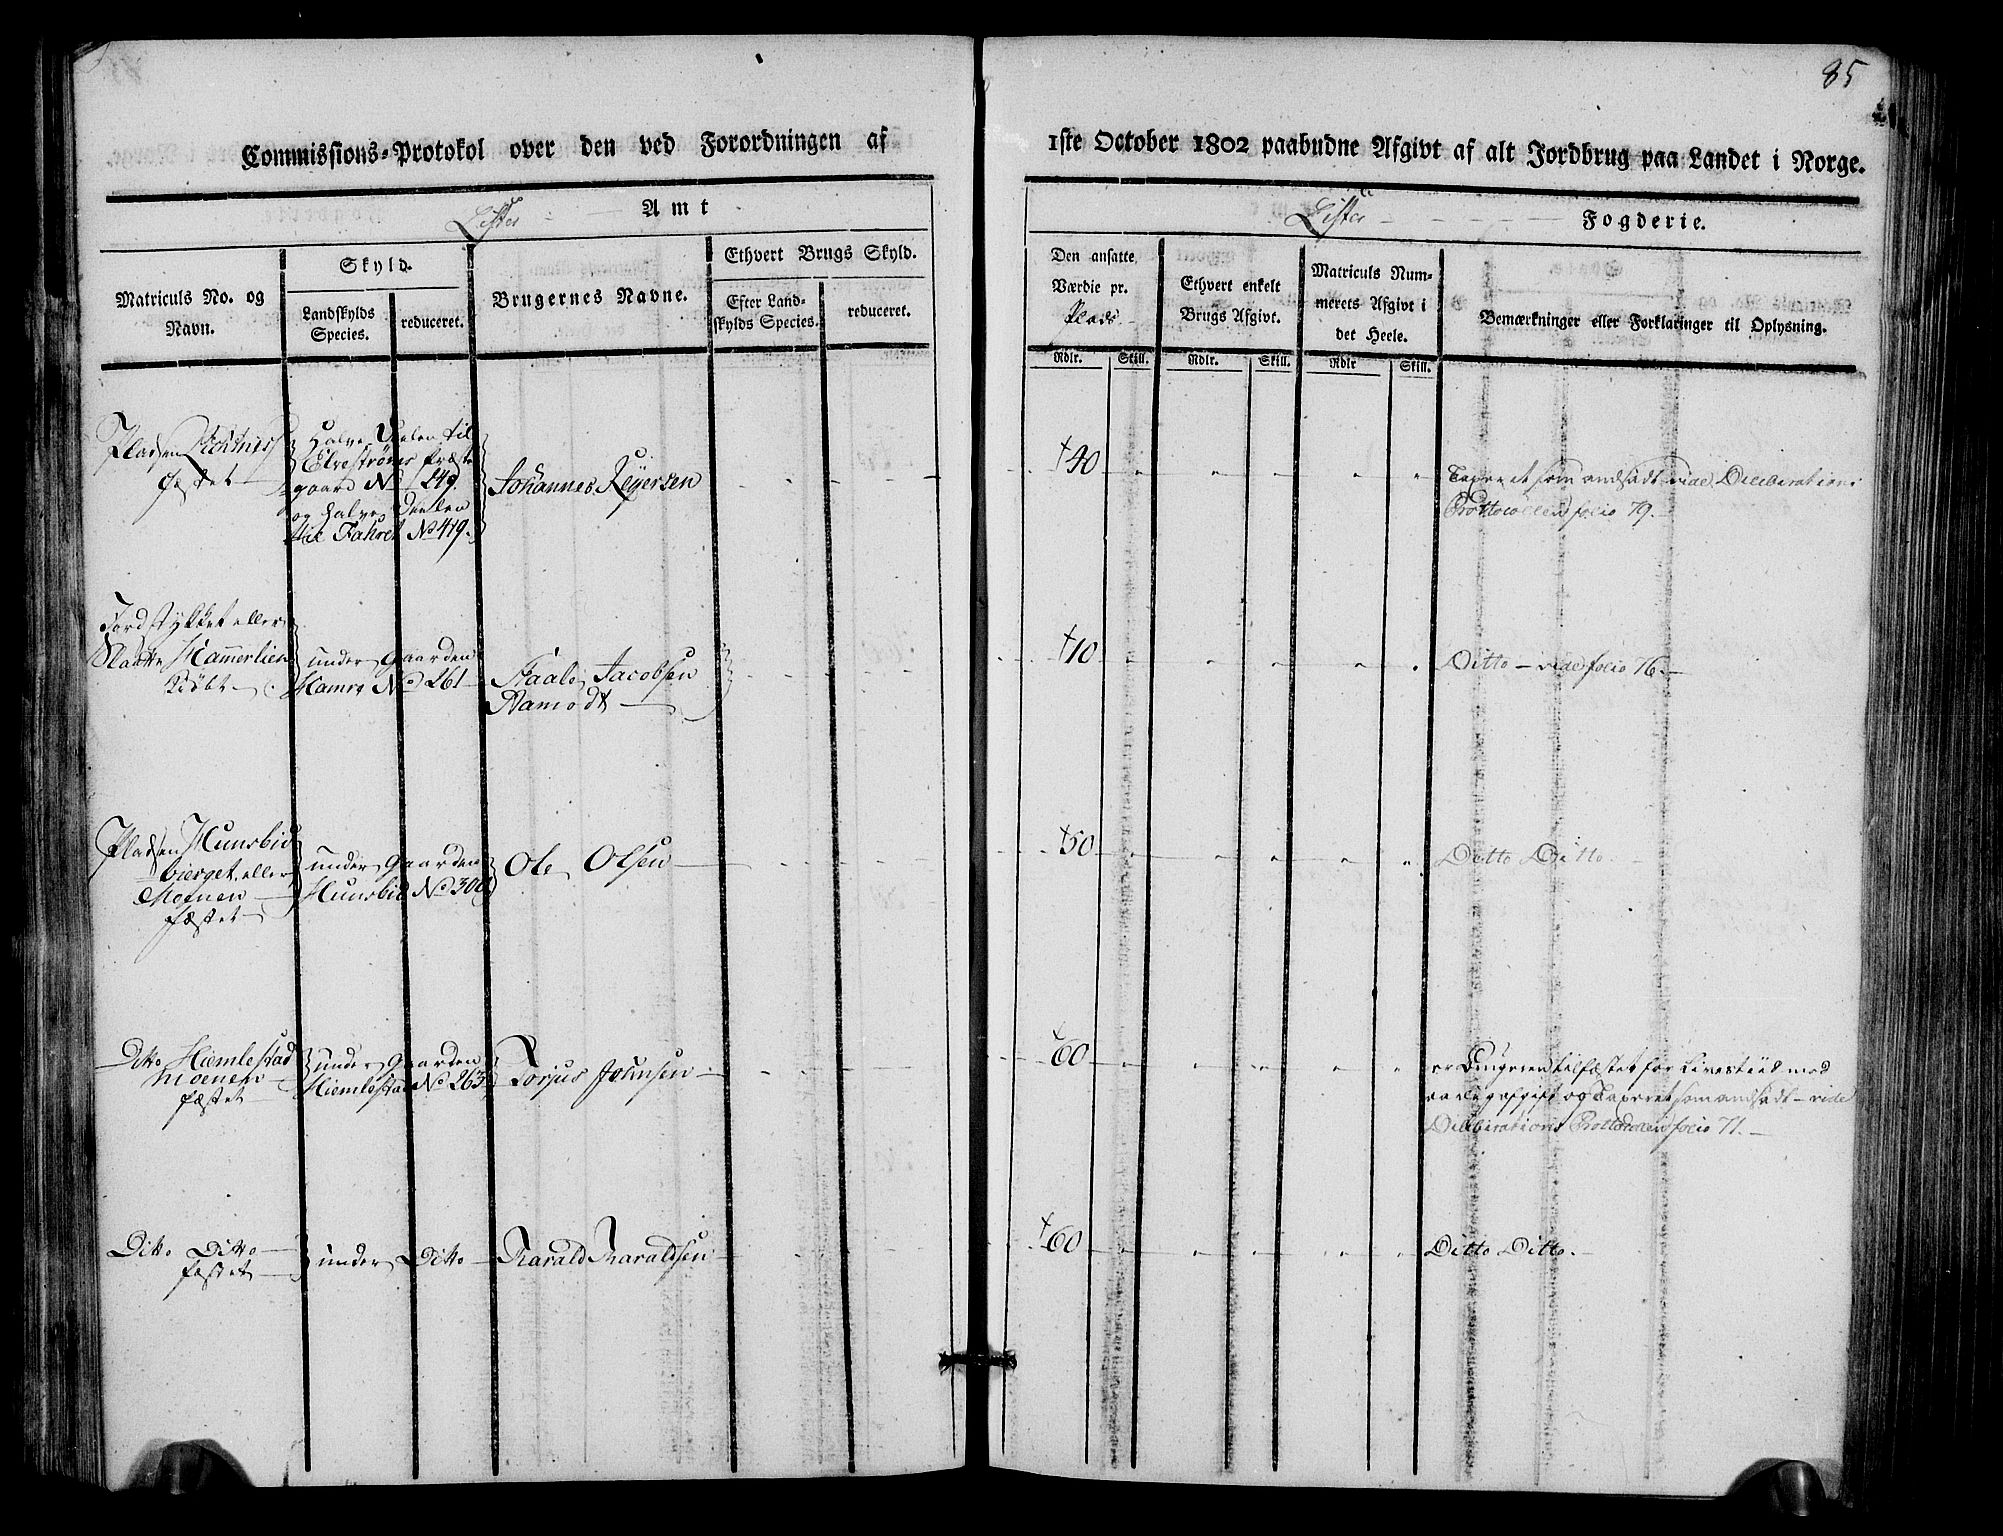 85
Commissions-Protokol over den ved Forordningen af
1ste October 1802 paabudne Afgivt af alt Jordbrug paa Landet i Norge.
Lister Amt
Lister Fogderie.
Matriculs No. og Navn.
Skyld.
Landskylds Species.
reduceret.
Brugernes Navne.
Ethvert Brugs Skyld.
Efter Land-
skylds Species.
reduceret.
Den ansatte
Værdie pr.
Plads
Ethvert enkelt
Brugs Afgivt.
Matriculs Num-
merets Afgivt i
det Heele.
Bemærkninger eller Forklaringer til Oplysning.
Rdlr. Skill. Rdlr. Skill. Rdlr Skill.
Pladsen
fæstet
halve Deelen til
Præste
gaard No 249.
og halve Deelen
til Fahret No 419.
Johannes Reyersen
†40
Taxeret som andsadt vide Deliberations
Prottocollen folio 79.
Jordstykket eller
Slaatte Hamerlien
Kiøbt
under Gaarden
Hamre No 261
Staale Jacobsen
Aamodt
†10
Ditto vide folio 76.
Pladsen Hunsbid
bierget eller
Moenen
fæstet
under Gaarden
Hunsbid No 300
Ole Olsen
†50
Ditto Ditto.
Ditto Hiemlestad
Moenen
fæstet
under Gaarden
Hiemlestad No 263
Torjus Johnsen
†60
er Brugeren tilfæstet for Livestiid med
aarlig afgift og Taxeret som andsadt vide
Deliberations Prottocollen folio 71.
Ditto Ditto
fæstet
under Ditto
Harald Haraldsen
†60
Ditto Ditto.